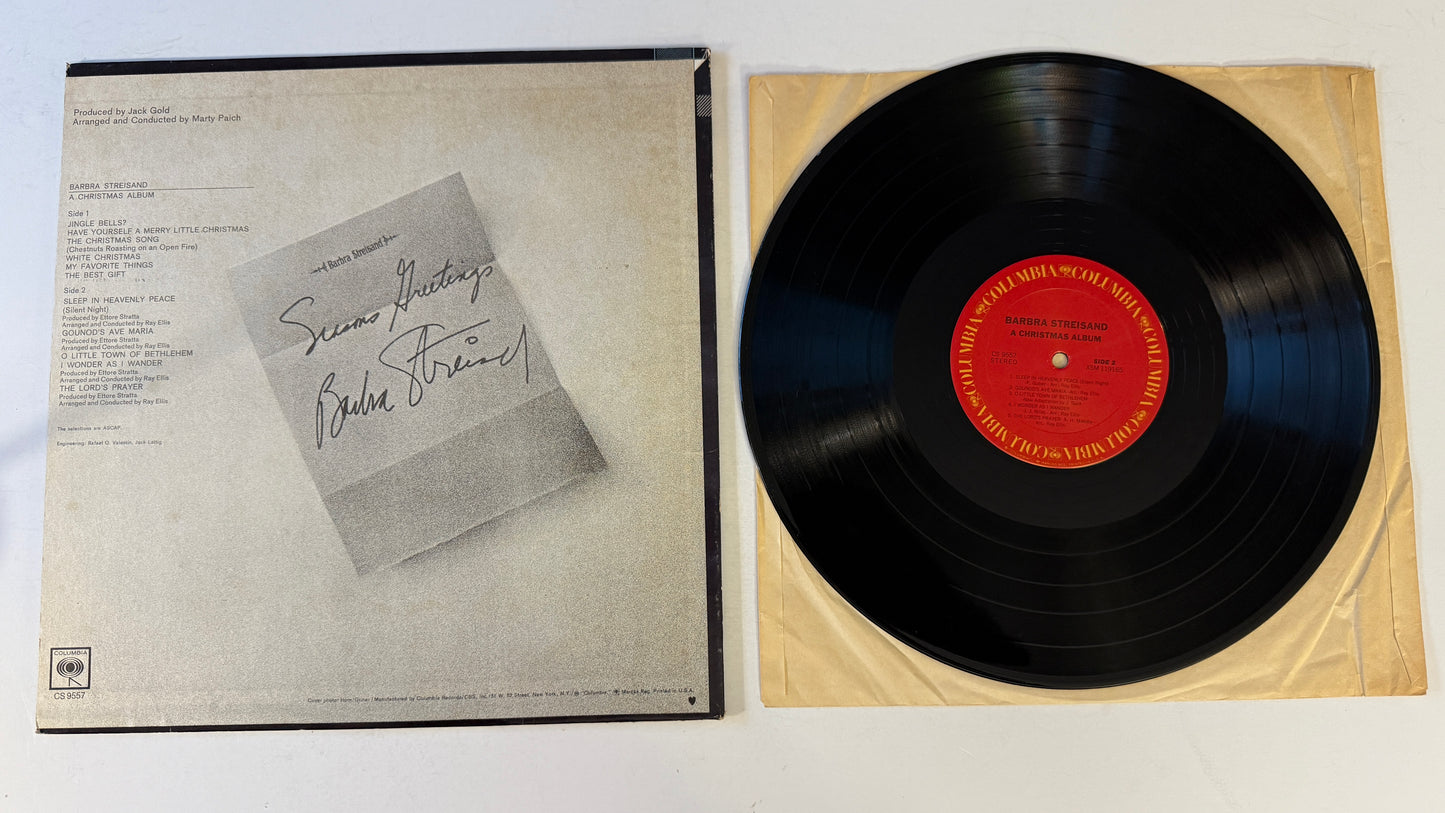 Produced by Jack Gold
Arranged and Conducted by Marty Paich
BARBRA STREISAND
A CHRISTMAS ALBUM
Side 1
JINGLE BELLS?
HAVE YOURSELF A MERRY LITTLE CHRISTMAS
THE CHRISTMAS SONG
(Chestnuts Roasting on an Open Fire)
WHITE CHRISTMAS
MY FAVORITE THINGS
THE BEST GIFT
Side 2
SLEEP IN HEAVENLY PEACE
(Silent Night)
Produced by Ettore Stratta
Arranged and Conducted by Ray Ellis
GOUNOD'S AVE MARIA
Produced by Ettore Stratta
Arranged and Conducted by Ray Ellis
O LITTLE TOWN OF BETHLEHEM
I WONDER AS I WANDER
Produced by Ettore Stratta
Arranged and Conducted by Ray Ellis
THE LORD'S PRAYER
Produced by Ettore Stratta
Arranged and Conducted by Ray Ellis
The selections are ASCAP.
Engineering: Rafael O. Valentin, Jack Lattig
Barbra Streisand
Seasons Greetings
Barbra Streisand
COLUMBIA
CS 9557
Manufactured by Columbia Records/CBS, Inc./51 W. 52 Street, New York, N.Y./ "Columbia," Marcas Reg. Printed in U.S.A.
COLUMBIA COLUMBIA COLUMBIA COLUMBIA COLUMBIA COLUMBIA
BARBRA STREISAND
A CHRISTMAS ALBUM
CS 9557
STEREO
SIDE 2
XSM 119165
1. SLEEP IN HEAVENLY PEACE (Silent Night)
F. Gruber - Arr.: Ray Ellis
2. GOUNOD'S AVE MARIA - Arr.: Ray Ellis
3. O LITTLE TOWN OF BETHLEHEM
4. I WONDER AS I WANDER
J. J. Niles - Arr.: Ray Ellis
5. THE LORD'S PRAYER
Arr.: Ray Ellis